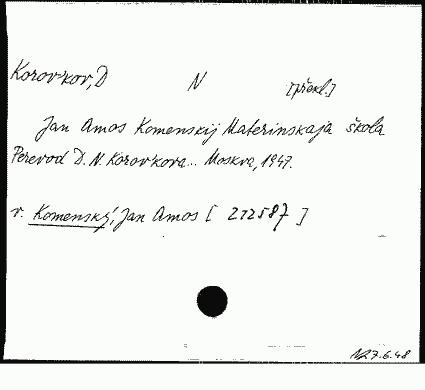 Korov'kov, D N [překl.]
Jan Amos Komenskij Materinskaja škola
Perevod D. N. Korov'kova... Moskva, 1947.
v. Komenský, Jan Amos [ 212587 ]
7.6.48